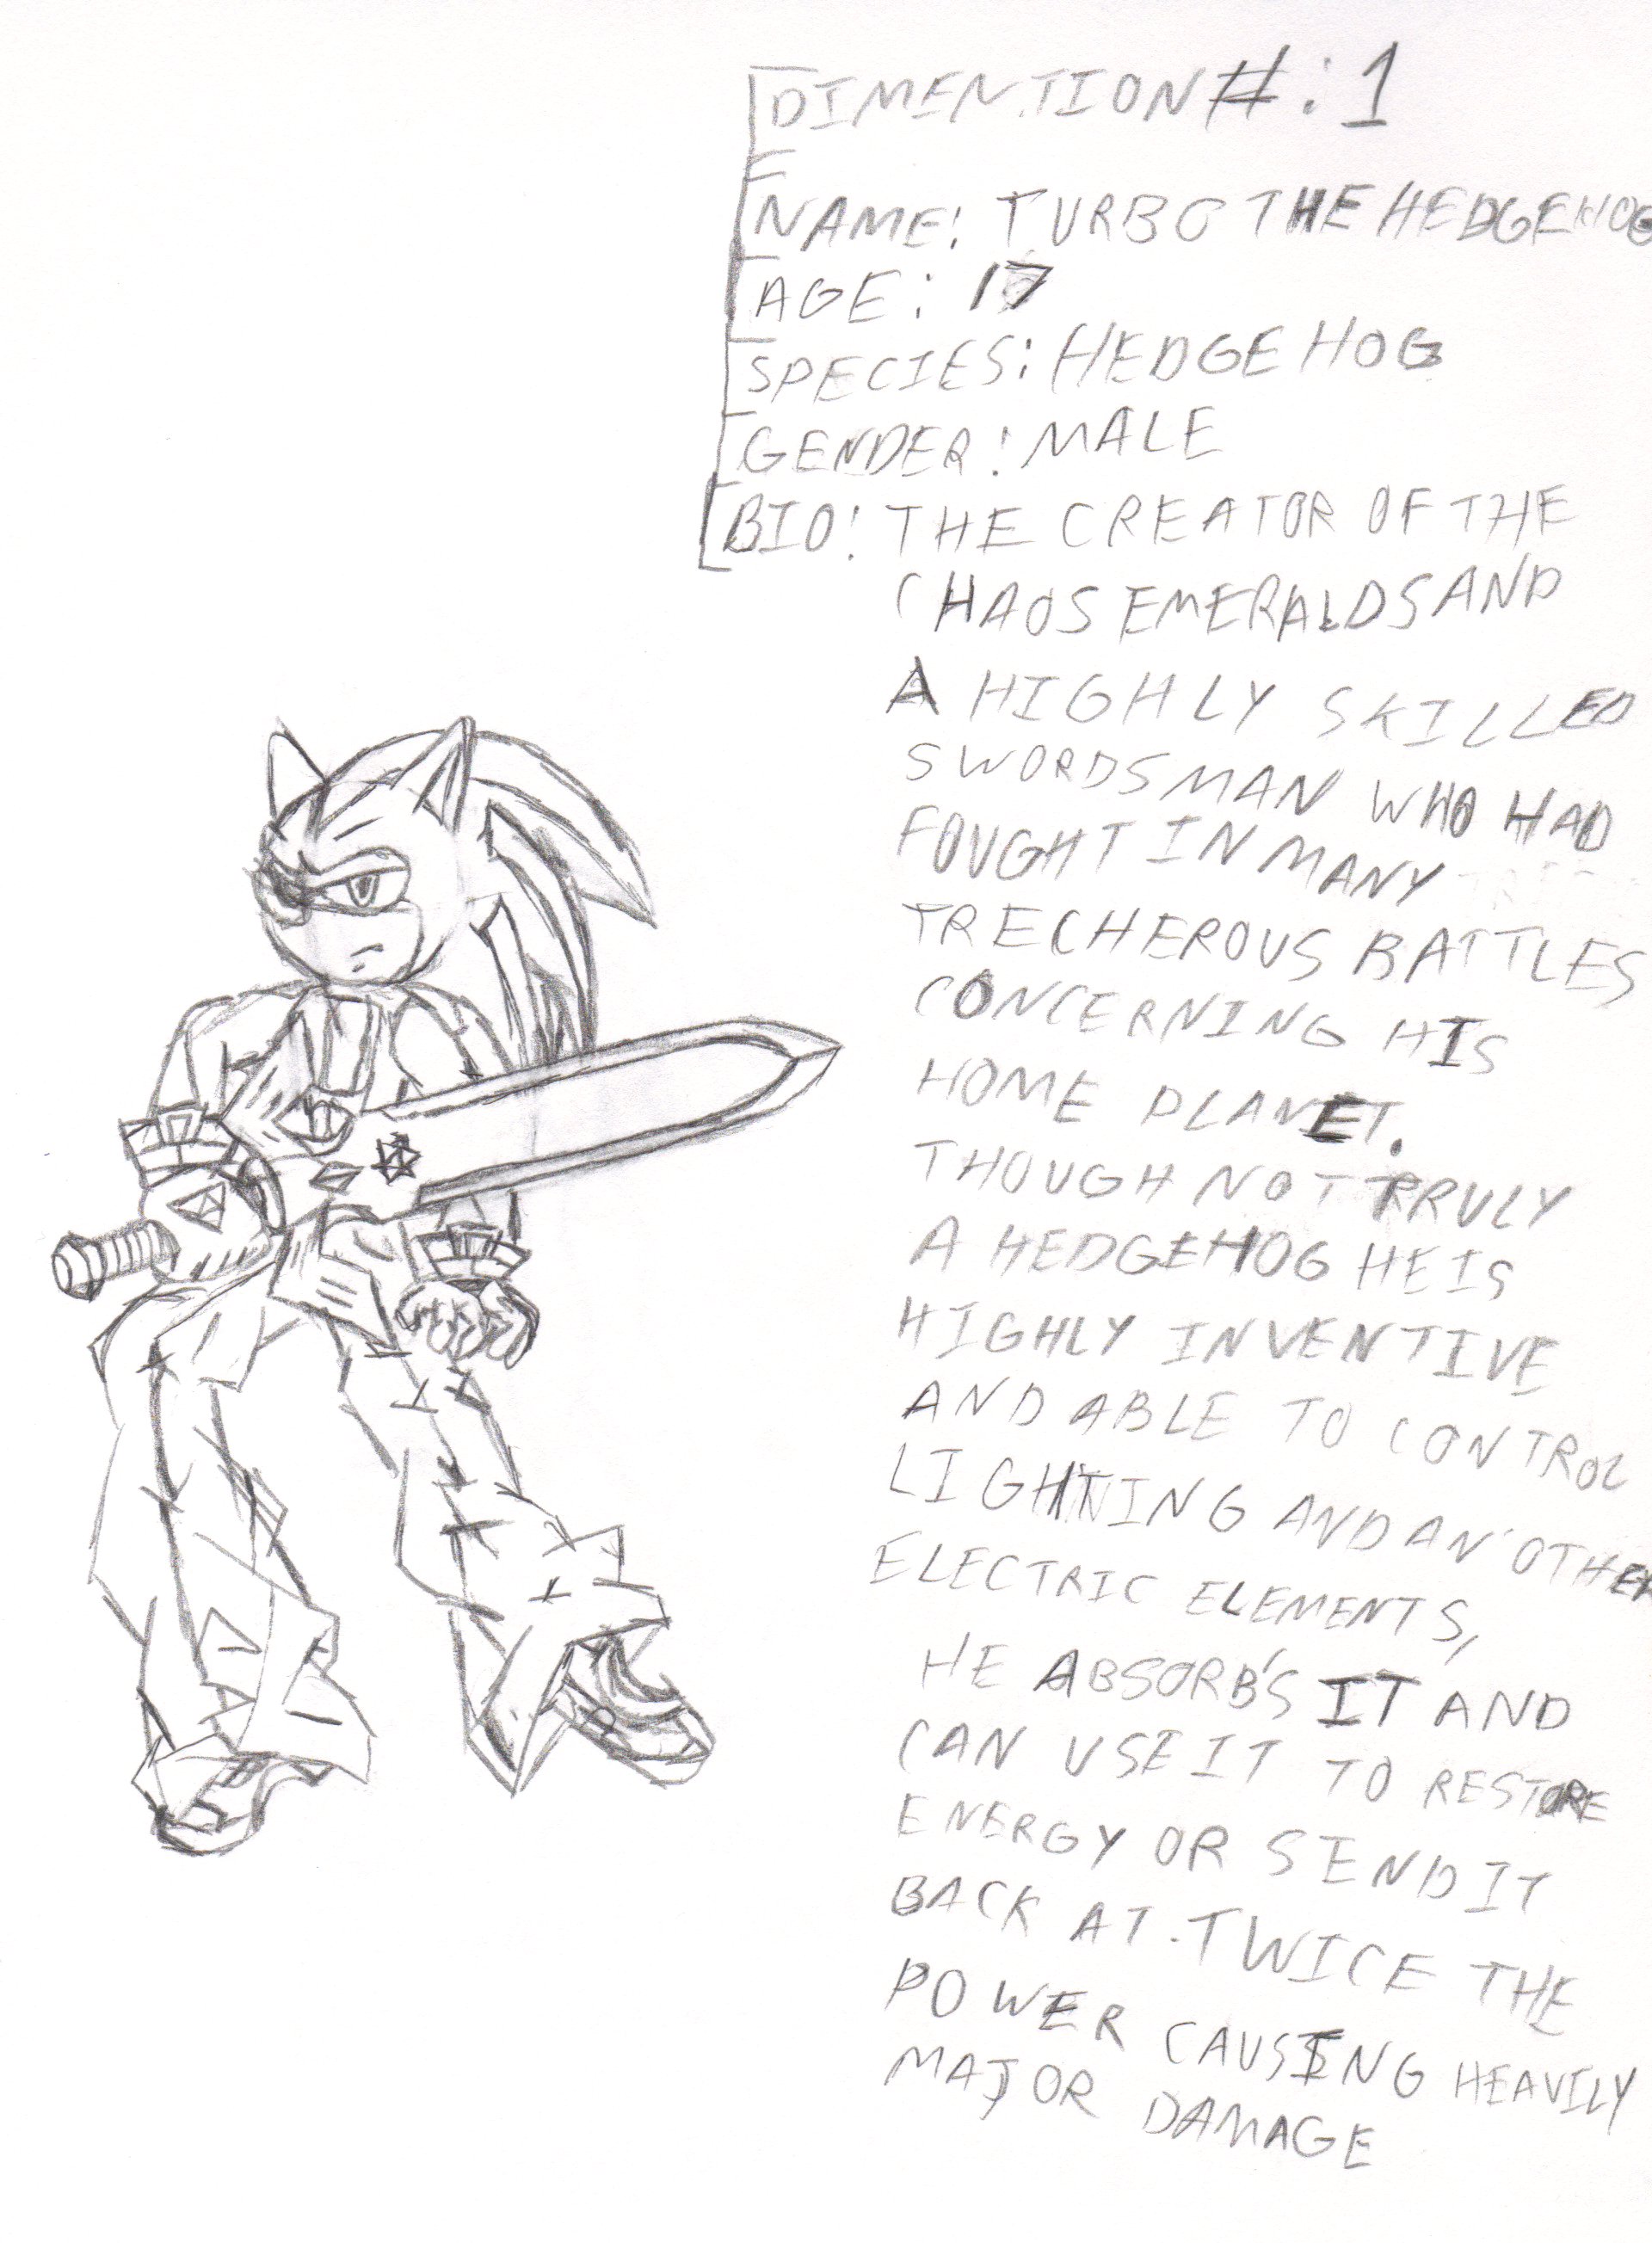 DIMENTION #:1
NAME: TURBO THE HEDGEHOG
AGE: 17
SPECIES: HEDGEHOG
GENDER: MALE
BIO: THE CREATOR OF THE
CHAOS EMERALDS AND
A HIGHLY SKILLED
SWORDSMAN WHO HAD
FOUGHT IN MANY
TRECHEROUS BATTLES
CONCERNING HIS
HOME PLANET.
THOUGH NOT TRULY
A HEDGEHOG HE IS
HIGHLY INVENTIVE
AND ABLE TO CONTROL
LIGHTNING AND AN'OTHER
ELECTRIC ELEMENTS,
HE ABSORB'S IT AND
CAN USE IT TO RESTORE
ENERGY OR SEND IT
BACK AT TWICE THE
POWER CAUSING HEAVILY
MAJOR DAMAGE